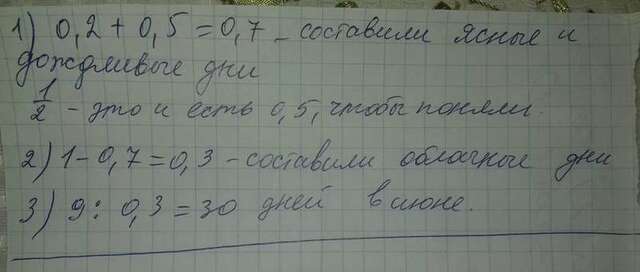 1) 0,2 + 0,5 = 0,7 - составили ясные и
дождливые дни
1/2 - это и есть 0,5, чтобы поняли.
2) 1 - 0,7 = 0,3 - составили облачные дни
3) 9 : 0,3 = 30 дней в июне.